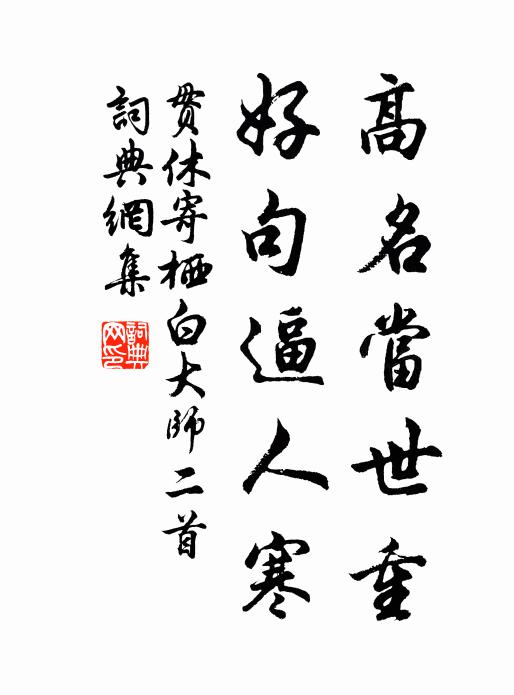 高名當世重
好句逼人寒
貫休寄栖白大師二首
詞典網集
詞典網印